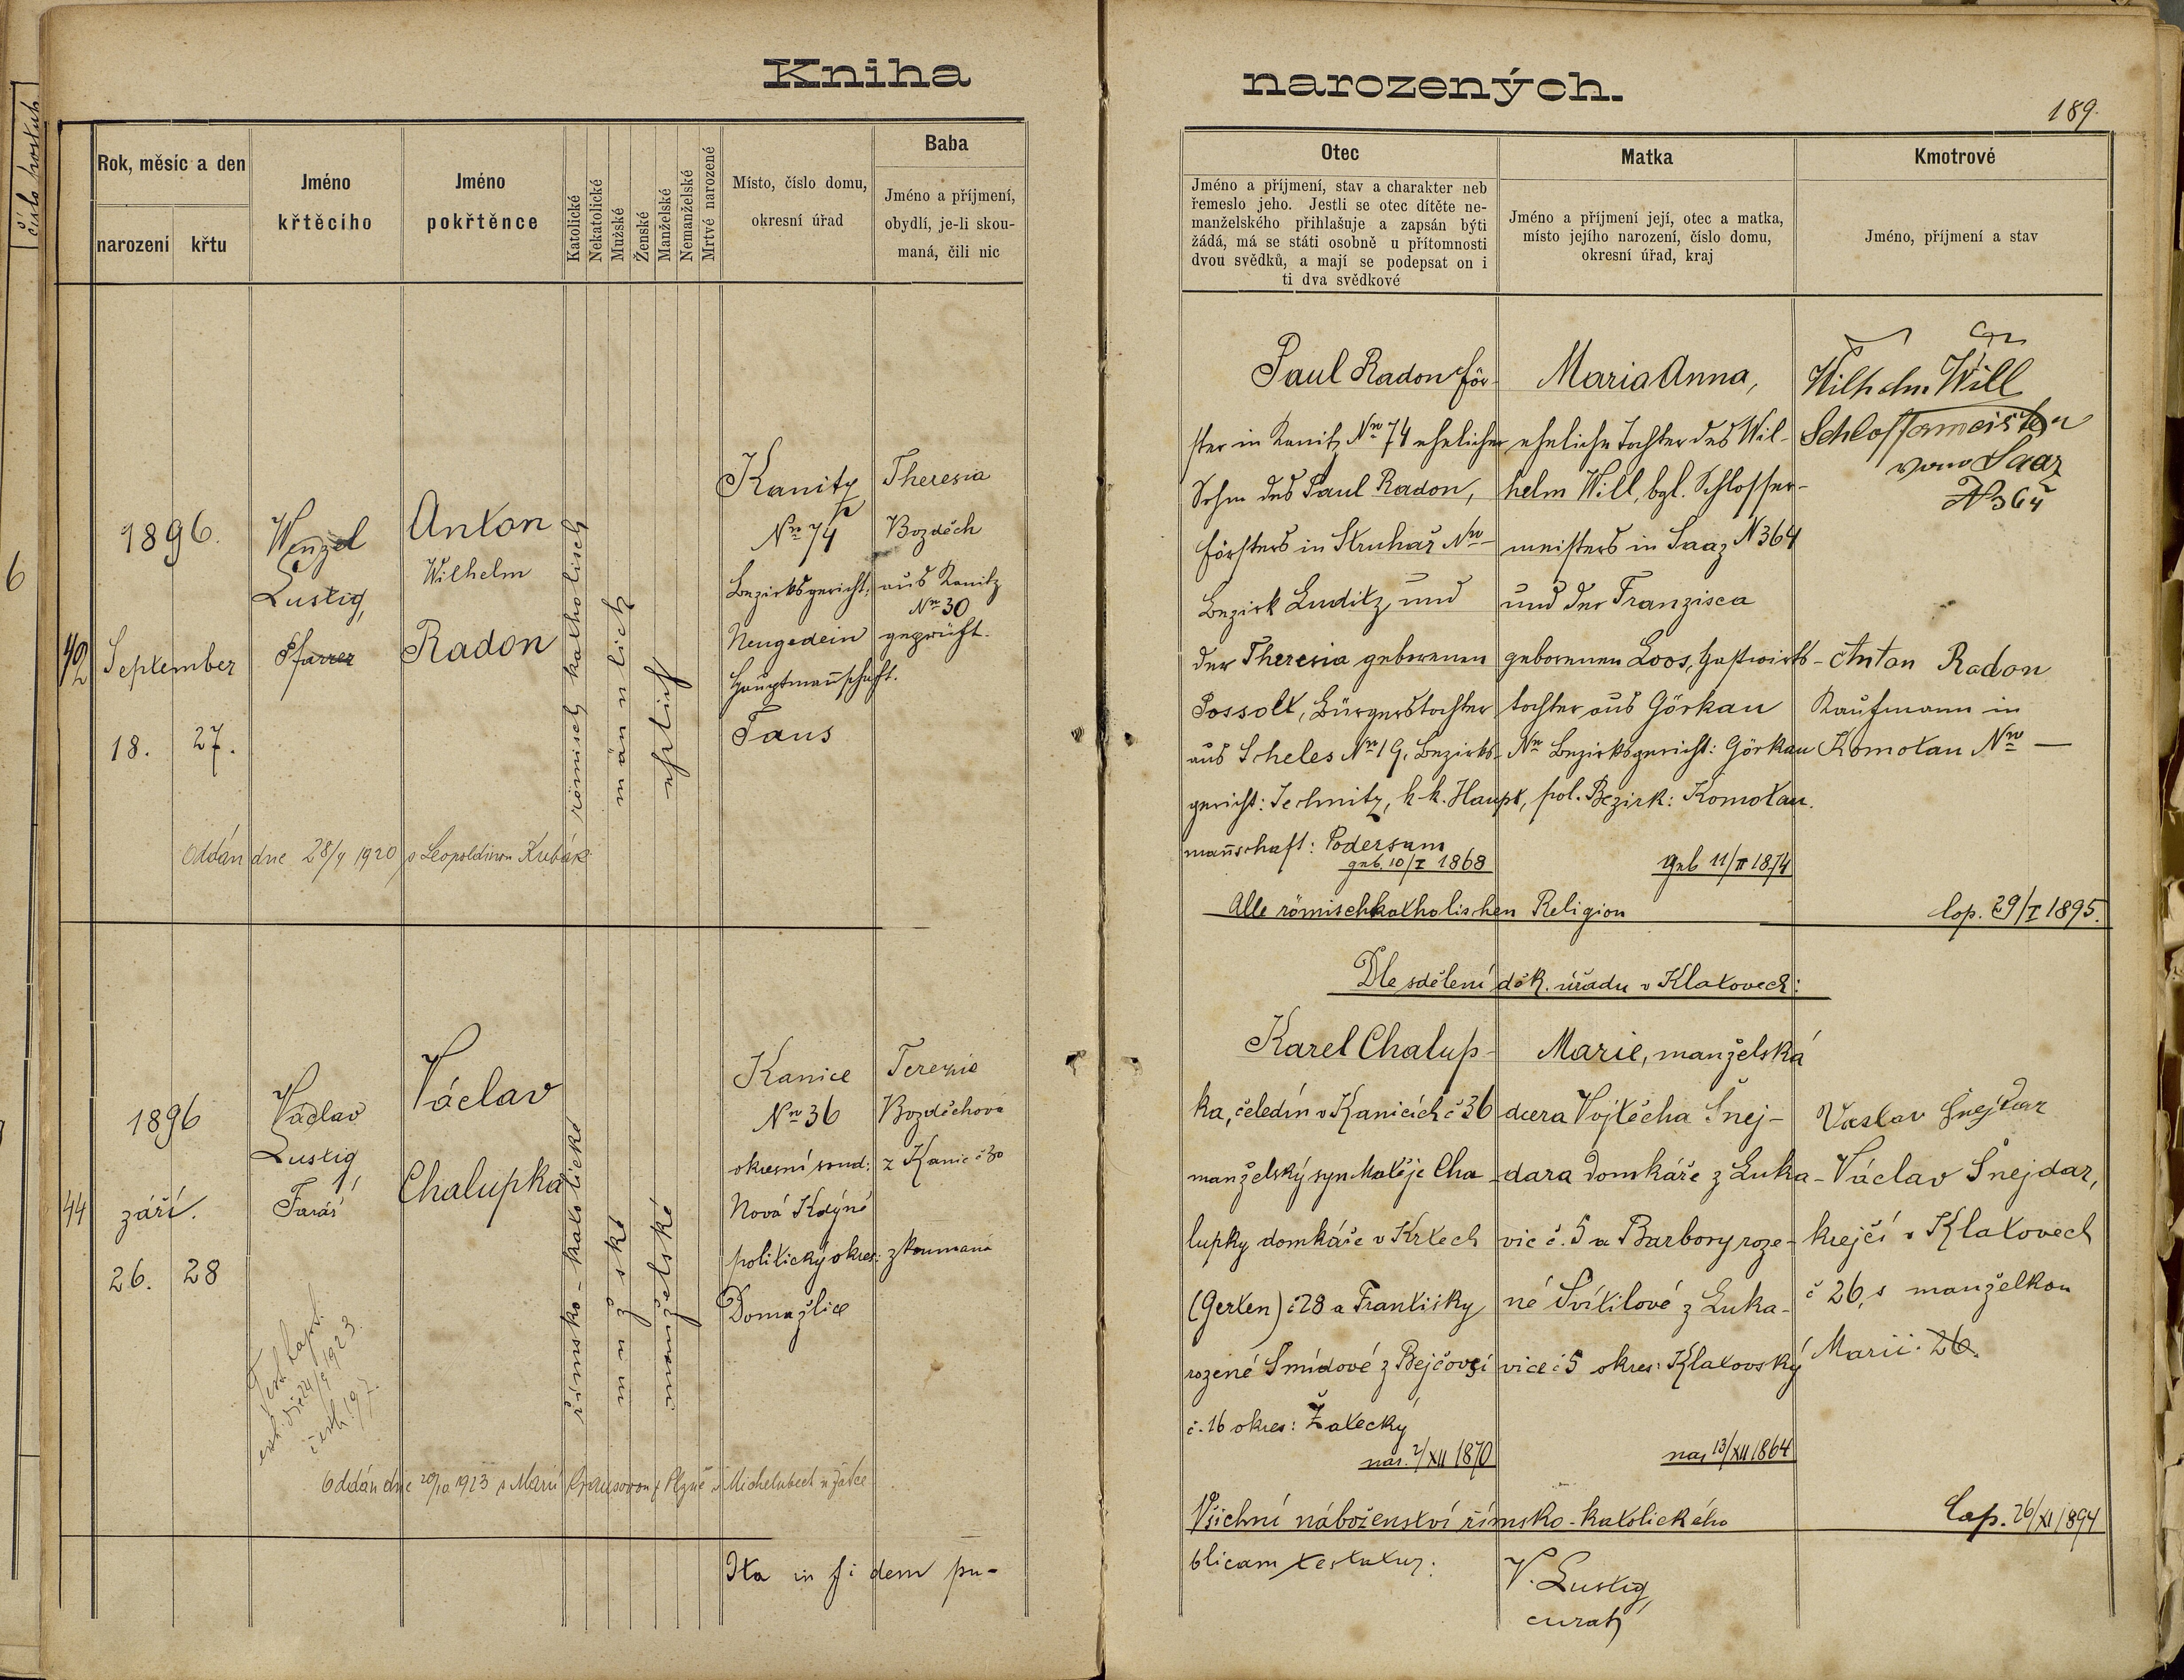 Kniha
narozených.
189.
číslo
Rok, měsíc a den
narození
křtu
Jméno
křtěcího
Jméno
pokřtěnce
Katolické
Nekatolické
Mužské
Ženské
Manželské
Nemanželské
Mrtvé narozené
Místo, číslo domu,
okresní úřad
Baba
Jméno a příjmení,
obydlí, je-li skou-
maná, čili nic
Otec
Jméno a příjmení, stav a charakter neb
řemeslo jeho. Jestli se otec dítěte ne-
manželského přihlašuje a zapsán býti
žádá, má se státi osobně u přítomnosti
dvou svědků, a mají se podepsat on i
ti dva svědkové
Matka
Jméno a příjmení její, otec a matka,
místo jejího narození, číslo domu,
okresní úřad, kraj
Kmotrové
Jméno, příjmení a stav
6
1896.
September
18.
27.
Wenzel
Lustig,
Pfarrer
Anton
Wilhelm
Radon
römisch katholisch
männlich
ehelich
Kanitz
Nro 74
Bezirksgericht:
Neugedein
Hauptmannschaft.
Taus
Theresia
Bozděch
aus Kanitz
Nro 30
geprüft.
Paul Radon För-
ster in Kanitz Nro 74 ehelicher
Sohn des Paul Radon,
Försters in Struhař Nro –
Bezirk Luditz und
der Theresia geborenen
Possolt, Bürgerstochter
aus Scheles Nro 19, Bezirks-
gericht: Jechnitz, k. k. Haupt,
mannschaft: Podersam
geb. 10/I 1868
Maria Anna,
eheliche Tochter des Wil-
helm Will, bgl. Schlosser-
meisters in Saaz N 364
und der Franzisca
geborenen Loos, Gastwirts-
tochter aus Görkau
Nro Bezirksgericht: Görkau
pol. Bezirk: Komotau.
geb 11/II 1874
Wilhelm Will
Schlossermeister
vom Saaz
N 364
Anton Radon
Kaufmann in
Komotau Nro —
Oddán dne 28/9 1920 s Leopoldinou Kubák
Alle römischkatholischen Religion
Cop. 29/I 1895.
Dle sdělení děk. úřadu v Klatovech:
44
1896
září.
26.
28
Václav
Lustig,
Farář
Václav
Chalupka
římsko-katolické
mužské
manželské
Kanice
Nro 36
okresní soud:
Nová Kdýně
politický okres:
Domažlice
Terezie
Bozděchova
z Kanic č 30
zkoumaná
Karel Chalup-
ka, čeledín v Kanicích č 36
manželský syn Matěje Cha
lupky domkáře v Krtech
(Gerten) č 28 a Františky
rozené Šmídové z Bejčovsi
č. 16 okres: Žatecký
nar. 2/XII 1870
Marie, manželská
dcera Vojtěcha Šnej-
dara domkáře z Luka-
vic č. 5 a Barbory roze-
né Svítilové z Luka-
vice č 5 okres: Klatovský
nar 13/XII 1864
Vaslav Šnejdar
Václav Šnejdar,
krejčí v Klatovech
č 26, s manželkou
Marii. 26.
Oddán dne 20/10 1923 s Marií Krausovou
Všichni náboženství římsko-katolického
Cop. 26/XI 1894
Ita in fidem pu-
blicam testatur:
V. Lustig,
curat